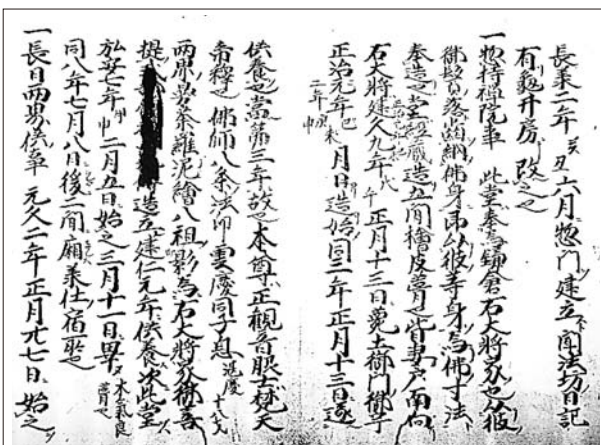 長承二年癸丑六月惣門建立ト聞法切日記
有亀井房改之也
一惣持禅院事 此堂奉為鎌倉右大将家也彼
御鬢落歯納佛身帛以彼等身為佛寸法
奉造之堂経蔵造五間檜皮葺也皆妻戸南向
右大将建久九年戊午正月十三日薨土御門御宇
正治元年己未 月日造始同三年正月十三日遂
二年庚申
供養也當第三年故也本尊正観音脇士梵天
帝釋也佛師八条法印雲慶同子息湛慶
両界曼荼羅泥繪八祖影為右大将家御菩
提 造立建仁元年供養次此堂
弘安七年甲申二月五日始之三月十一日畢又葺也
同八年七月八日後二間廂承仕宿所也
一長日両界供事 元久二年正月廿七日始之